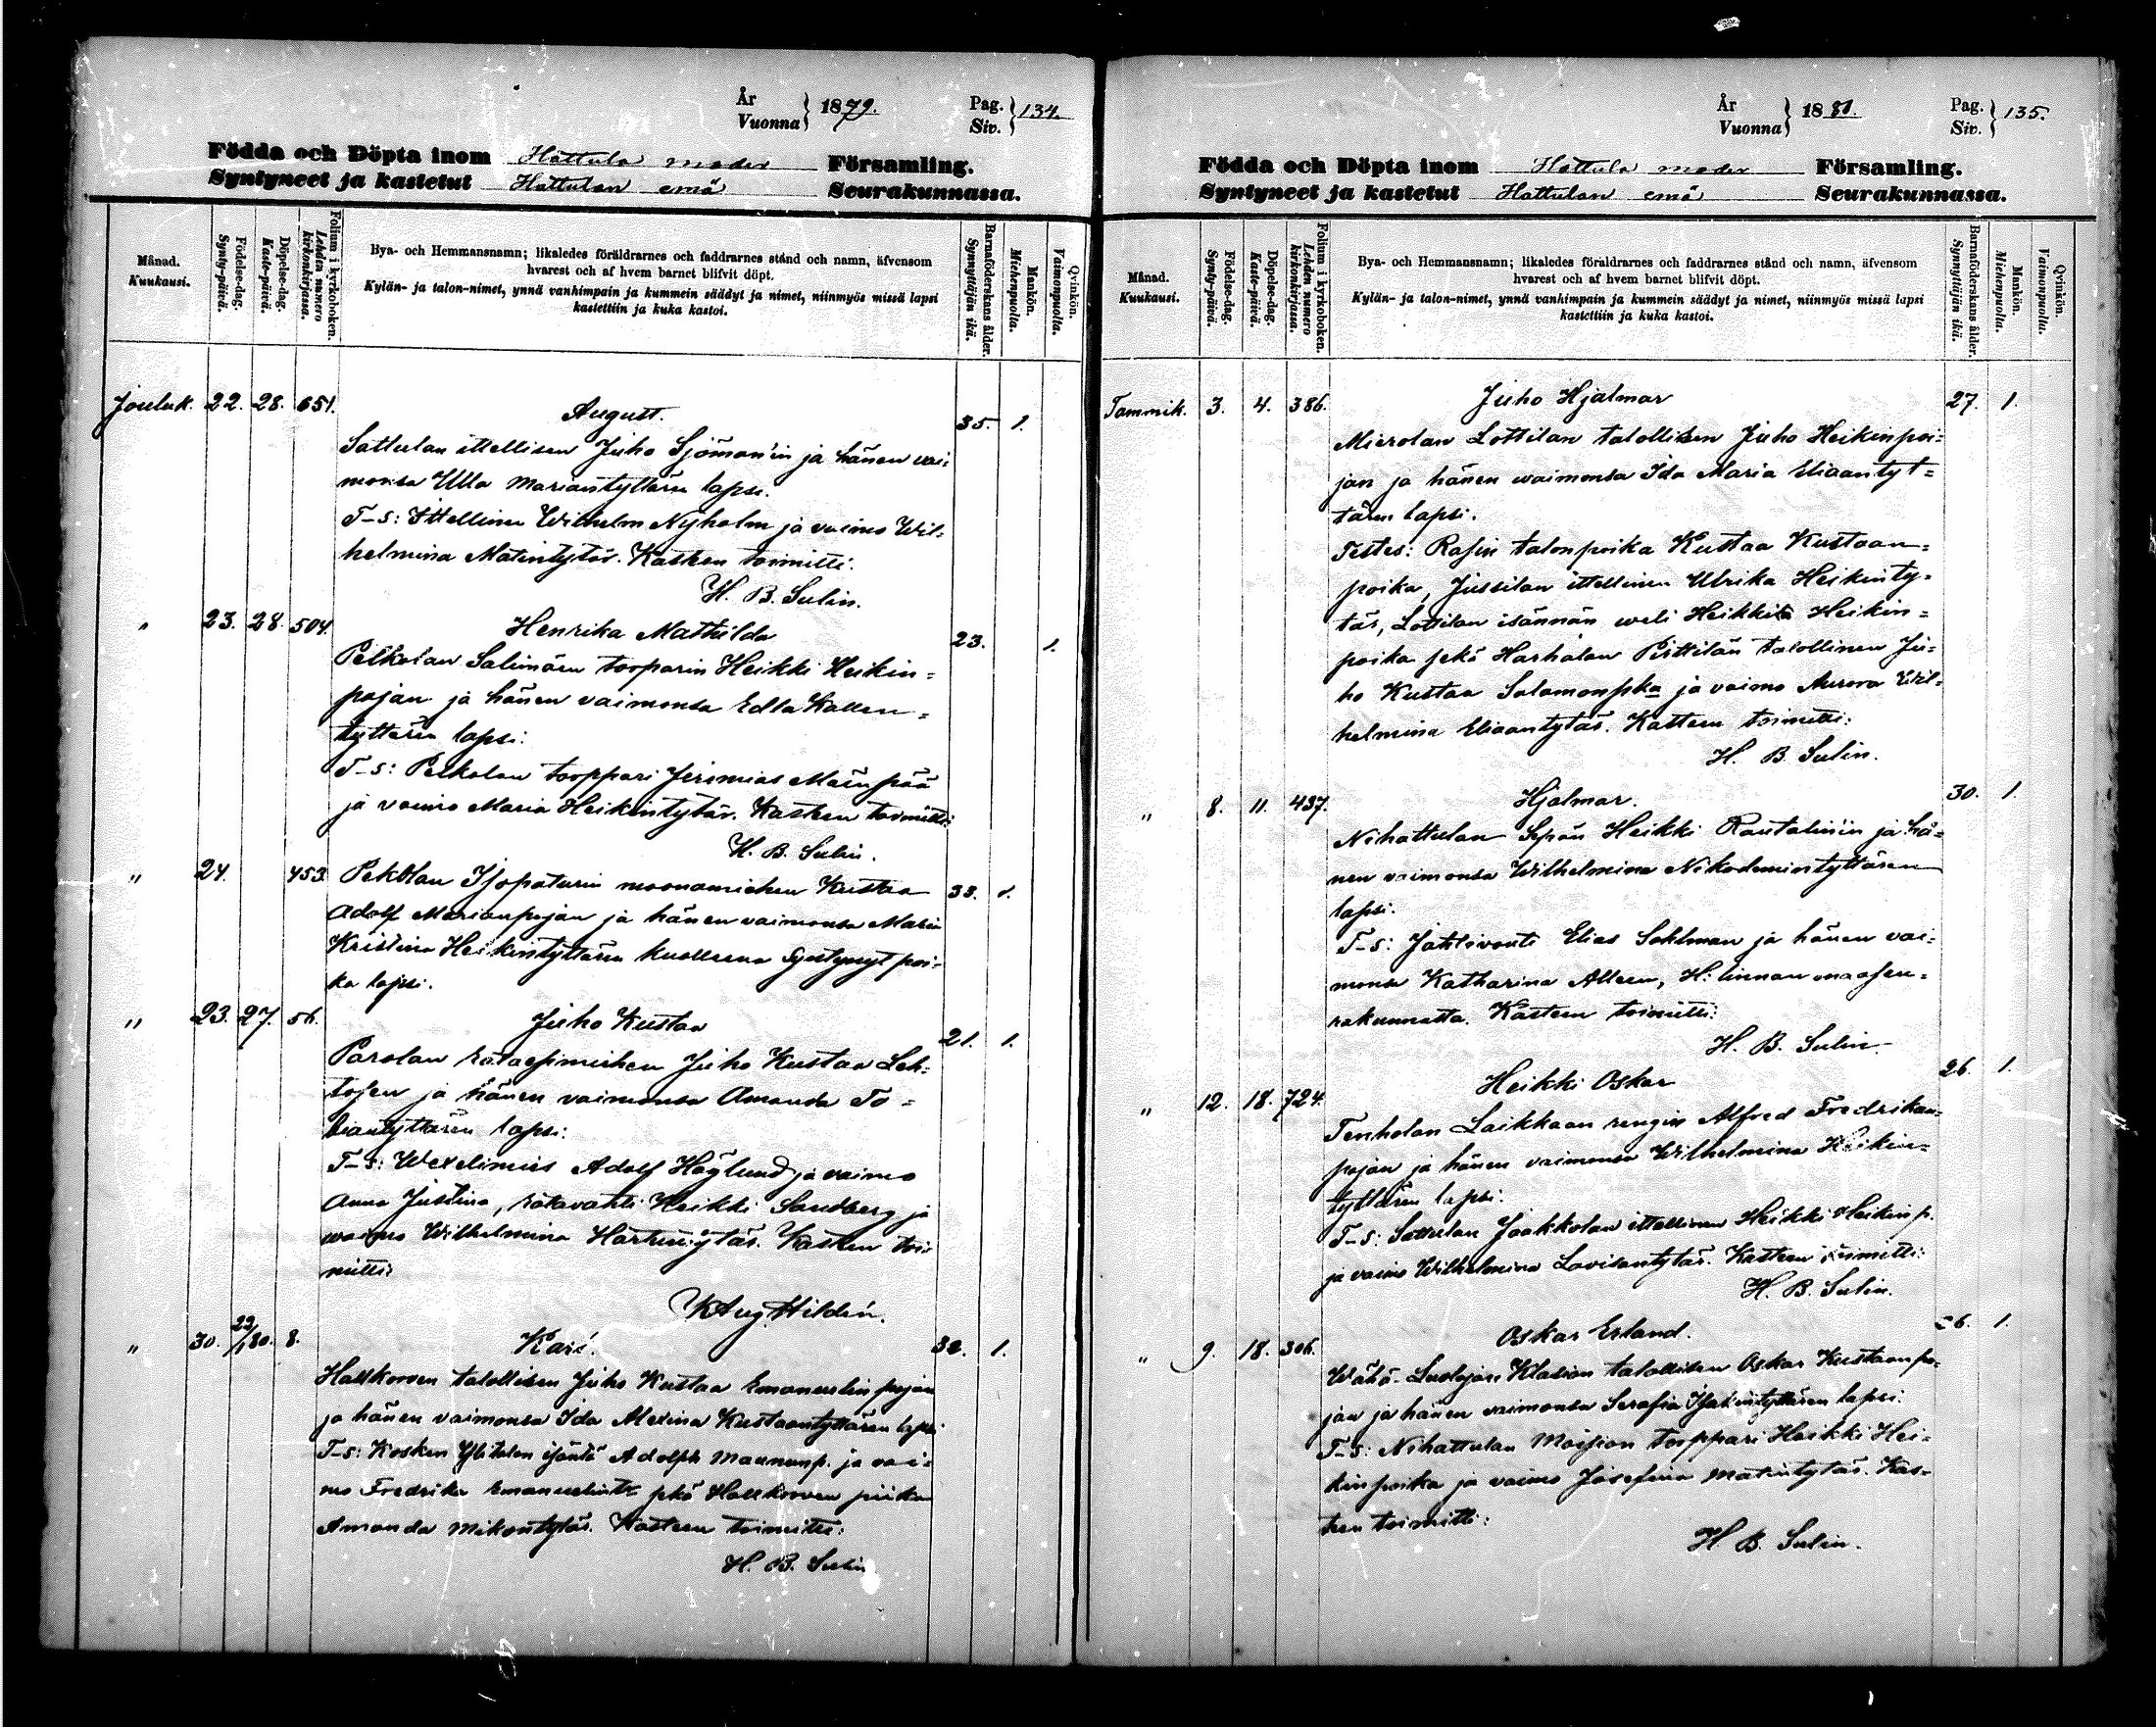 År
Vuonna } 1879.
Pag.
Siv. } 134.
Födda och Döpta inom Hattula moder Församling.
Syntyneet ja kastetut Hattulan emä Seurakunnassa.
Månad.
Kuukausi.
Födelse-dag.
Synty-päivä.
Döpelse-dag.
Kaste-päivä.
Folium i kyrkoboken.
Lehden numero kirkonkirjassa.
Bya- och Hemmansnamn; likaledes föräldrarnes och faddrarnes stånd och namn, äfvensom
hvarest och af hvem barnet blifvit döpt.
Kylän- ja talon-nimet, ynnä vanhimpain ja kummein säädyt ja nimet, niinmyös missä lapsi
kastettiin ja kuka kastoi.
Barnaföderskans ålder.
Synnyttäjän ikä.
Mankön.
Miehenpuolta.
Qvinkön.
Vaimonpuolta.
Jouluk. 22. 28. 651. August. 35. 1.
Sattulan ittellisen Juho Sjöman'in ja hänen vai-
monsa Ulla Mariantyttären lapsi.
T-s: Ittellinen Wilhelm Nyholm ja vaimo Wil-
helmina Matintytär. Kasteen toimitti:
H. B. Sulin.
" 23. 28. 504. Henrika Mathilda 23. 1.
Pelkolan Salinären torparin Heikki Heikin=
pojan ja hänen vaimonsa Edla Kallen=
tyttären lapsi:
T-s: Pelkolan torppari Jeremias Mäenpää
ja vaimo Maria Heikintytär. Kasteen toimitti:
H. B. Sulin.
" 24. 453. Pekolan Isopaturin muonamiehen Kustaa 33. 1.
Adolf Marianpojan ja hänen vaimonsa Maria
Kristina Heikintyttären kuolleena syntynyt poi-
ka lapsi.
" 23. 27. 56. Juho Kustaa 21. 1.
Parolan rataesimiehen Juho Kustaa Leh-
tosen ja hänen vaimonsa Amanda To=
biantyttären lapsi:
T-s: Wexelimies Adolf Höglund ja vaimo
Anna Justina, ratavahti Heikki Sandberg ja
waimo Wilhelmina Kasteen toi-
mitti:
K Aug. Hildén.
" 30. 22/1 80. 8. Kari. 32. 1.
Hallkorven talollisen Juho Kustaa Emanuelin pojan
ja hänen vaimonsa Ida Alexina Kustaantyttären lapsi
T-s: Kosken Ylitalon isäntä Adolph Maununp. ja vai-
mo Fredrika Emanuelintr sekä Hallkorven piika
Amanda Mikontytär. Kasteen toimitti:
H. B. Sulin
År
Vuonna } 1880.
Pag.
Siv. } 135.
Födda och Döpta inom Hattula moder Församling.
Syntyneet ja kastetut Hattulan emä Seurakunnassa.
Månad.
Kuukausi.
Födelse-dag.
Synty-päivä.
Döpelse-dag.
Kaste-päivä.
Folium i kyrkoboken.
Lehden numero kirkonkirjassa.
Bya- och Hemmansnamn; likaledes föräldrarnes och faddrarnes stånd och namn, äfvensom
hvarest och af hvem barnet blifvit döpt.
Kylän- ja talon-nimet, ynnä vanhimpain ja kummein säädyt ja nimet, niinmyös missä lapsi
kastettiin ja kuka kastoi.
Barnaföderskans ålder.
Synnyttäjän ikä.
Mankön.
Miehenpuolta.
Qvinkön.
Vaimonpuolta.
Tammik. 3. 4. 386. Juho Hjalmar 27. 1.
Mierolan Lottilan talollisen Juho Heikinpoi-
jan ja hänen waimonsa Ida Maria Eliaantyt=
tären lapsi.
Testes: Rasin talonpoika Kustaa Kustaan=
poika, Jussilan ittellinen Ulrika Heikinty-
tär, Lottilan isännän weli Heikki Heikin=
poika sekä Harhalan Pirttilän talollinen Ju-
ho Kustaa Salamonpka ja vaimo Aurora Wil-
helmina Eliaantytär. Kasteen toimitti:
H. B. Sulin.
" 8. 11. 437. Hjalmar. 30. 1.
Nihattulan Sepän Heikki Rautalinin ja hä-
nen vaimonsa Wilhelmina Nikodemintyttären
lapsi.
T-s: Jahtivouti Elias Sahlman ja hänen vai-
monsa Katharina Alleen, H:linnan maaseu=
rakunnasta. Kasteen toimitti:
H. B. Sulin.
" 12. 18. 724. Heikki Oskar 26. 1.
Tenholan Laikkaan rengin Alfred Fredrikan-
pojan ja hänen vaimonsa Wilhelmina Heikin=
tyttären lapsi.
T-s: Sattulan Jaakkolan ittellinen Heikki Heikinp.
ja vaimo Wilhelmina Lovisantytär. Kasteen toimitti:
H. B. Sulin.
" 9. 18. 306. Oskar Erland. 26. 1.
Wähä-Luolajan Klasion talollisen Oskar Kustaanpo-
jan ja hänen vaimonsa Serafia Isakintyttären lapsi:
T-s: Nihattulan Moision torppari Heikki Hei-
kinpoika ja vaimo Josefina Matintytär. Kas-
teen toimitti:
H. B. Sulin.